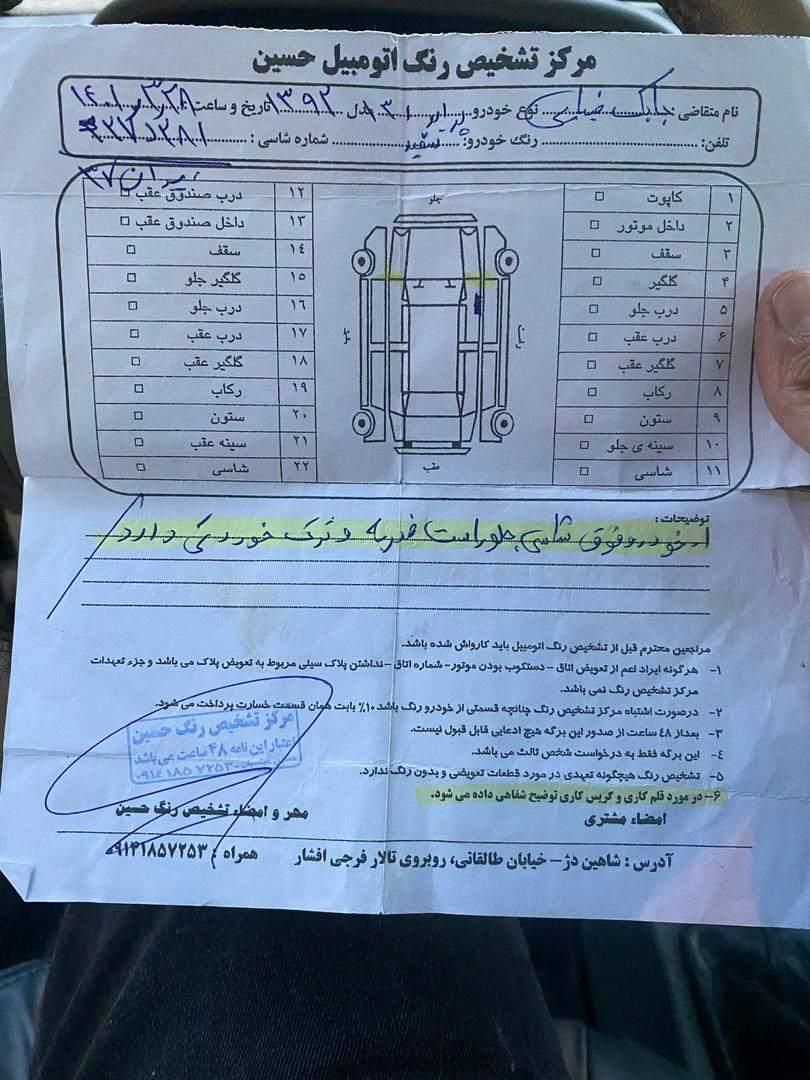 مرکز تشخیص رنگ اتومبیل حسین
نام متقاضی: نوع خودرو پراید ۱۳۱ مدل ۱۳۹۲ تاریخ و ساعت:
تلفن: رنگ خودرو: سفید شماره شاسی:
ایران ۳۷
۱ کاپوت
۲ داخل موتور
۳ سقف
۴ گلگیر
۵ درب جلو
۶ درب عقب
۷ گلگیر عقب
۸ رکاب
۹ ستون
۱۰ سینه ی جلو
۱۱ شاسی
جلو
راست
چپ
عقب
۱۲ درب صندوق عقب
۱۳ داخل صندوق عقب
۱۴ سقف
۱۵ گلگیر جلو
۱۶ درب جلو
۱۷ درب عقب
۱۸ گلگیر عقب
۱۹ رکاب
۲۰ ستون
۲۱ سینه عقب
۲۲ شاسی
توضیحات:
۱- خودرو فوق شاسی جلو راست ضربه و ترک خوردگی دارد
مراجعین محترم قبل از تشخیص رنگ اتومبیل باید کارواش شده باشد.
۱- هرگونه ایراد اعم از تعویض اتاق – دستکوب بودن موتور- شماره اتاق – نداشتن پلاک سیلی مربوط به تعویض پلاک می باشد و جزء تعهدات
مرکز تشخیص رنگ نمی باشد.
۲- درصورت اشتباه مرکز تشخیص رنگ چنانچه قسمتی از خودرو رنگ باشد ۱۰٪ بابت همان قسمت خسارت پرداخت می شود.
۳- بعداز ۴۸ ساعت از صدور این برگه هیچ ادعایی قابل قبول نیست.
۴- این برگه فقط به درخواست شخص ثالث می باشد.
۵- تشخیص رنگ هیچگونه تعهدی در مورد قطعات تعویضی و بدون رنگ ندارد.
۶- در مورد قلم کاری و گریس کاری توضیح شفاهی داده می شود.
مرکز تشخیص رنگ حسین
اعتبار این نامه ۴۸ ساعت می باشد
۰۹۱۴ ۱۸۵ ۷۲۵۳
امضاء مشتری
مهر و امضاء تشخیص رنگ حسین
آدرس : شاهین دژ – خیابان طالقانی، روبروی تالار فرجی افشار همراه : ۰۹۱۴۱۸۵۷۲۵۳